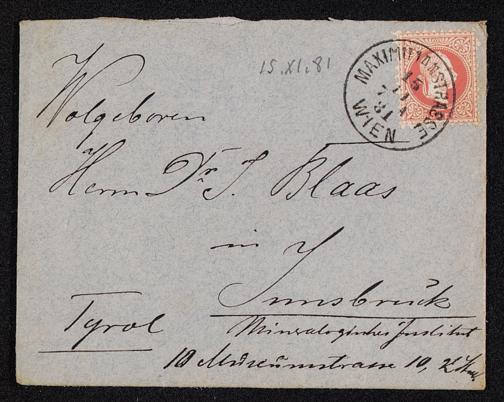 15.XI.81
MAXIMILIANSTRASSE
15
11
81
WIEN
Wolgeboren
Herrn Dr. J. Blaas
in
Innsbruck
Tyrol
Mineralogisches Institut
10 Museumstrasse 10,